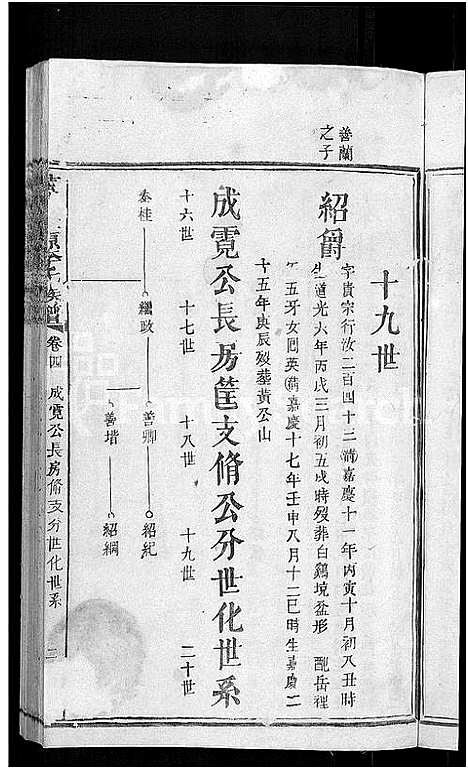 十九世
善蘭之子
紹爵
字貴宗行汝二百四十三清嘉慶十一年丙寅十月初八丑時
生道光六年丙戌三月初五戌時殁葬白鷄境盆形 配岳裡
五牙女囘英清嘉慶十七年壬申八月十二巳時生嘉慶二
十五年庚辰殁葬黃公山
成霓公長房筐支脩公分世化世系
十六世 十七世 十八世 十九世 二十世
泰桂 繼政 善卿 紹紀
善堦 紹綱
卷四 成霓公長房脩支分世化世系 二